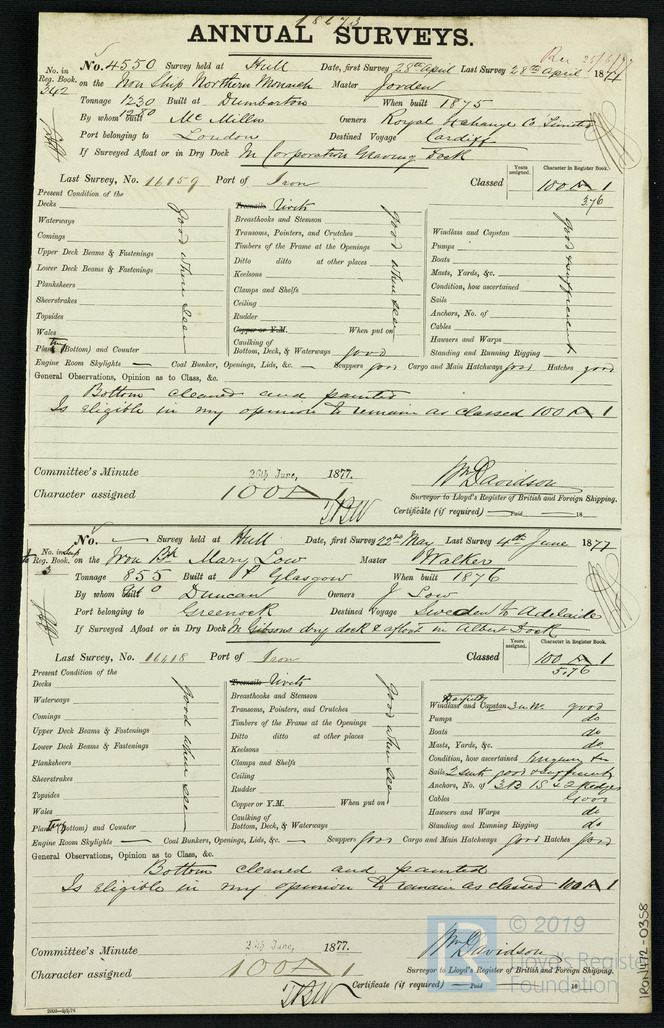 18673
ANNUAL SURVEYS.
Rec 25/6/77
No. in Reg. Book. 342
No. 4550 Survey held at Hull Date, first Survey 28th April Last Survey 28th April 1877
on the Iron Ship Northern Monarch Master Jorden
Tonnage 1230 Built at Dumbarton When built 1875
1280
By whom built Mc Millan Owners Royal Exchange Co Limited
Port belonging to London Destined Voyage Cardiff
If Surveyed Afloat or in Dry Dock In Corporation Graving Dock
Last Survey, No. 16159 Port of Iron Classed Years assigned. Character in Register Book. 100 A 1
3.76
Present Condition of the
Decks
Waterways
Comings
Upper Deck Beams & Fastenings
Lower Deck Beams & Fastenings
Planksheers
Sheerstrakes
Topsides
Wales
Plating (Bottom) and Counter
good where seen
Treenails Rivets
Breasthooks and Stemson
Transoms, Pointers, and Crutches
Timbers of the Frame at the Openings
Ditto ditto at other places
Keelsons
Clamps and Shelfs
Ceiling
Rudder
Copper or Y.M. When put on
Caulking of
Bottom, Deck, & Waterways good
good where seen
Windlass and Capstan
Pumps
Boats
Masts, Yards, &c.
Condition, how ascertained
Sails
Anchors, No. of
Cables
Hawsers and Warps
Standing and Running Rigging
good & sufficient
Engine Room Skylights — Coal Bunker, Openings, Lids, &c. — Scuppers good Cargo and Main Hatchways good Hatches good
General Observations, Opinion as to Class, &c.
Bottom cleaned and painted
Is eligible in my opinion to remain as classed 100 A 1
Committee's Minute 26th June, 1877.
Character assigned 100 A 1
Wm Davidson
Surveyor to Lloyd's Register of British and Foreign Shipping.
Certificate (if required) — Paid — 18
No. — Survey held at Hull Date, first Survey 22nd May Last Survey 4th June 1877
No. in Sup to Reg. Book. 3
on the Iron Bk Mary Low Master Walker
Tonnage 855 Built at Pt Glasgow When built 1876
By whom built Duncan Owners J Low
Port belonging to Greenock Destined Voyage Sweden to Adelaide
If Surveyed Afloat or in Dry Dock In Gibsons dry dock & afloat in Albert Dock
Last Survey, No. 16418 Port of Iron Classed Years assigned. Character in Register Book. 100 A 1
5.76
Present Condition of the
Decks
Waterways
Comings
Upper Deck Beams & Fastenings
Lower Deck Beams & Fastenings
Planksheers
Sheerstrakes
Topsides
Wales
Plating (Bottom) and Counter
good where seen
Treenails Rivets
Breasthooks and Stemson
Transoms, Pointers, and Crutches
Timbers of the Frame at the Openings
Ditto ditto at other places
Keelsons
Clamps and Shelfs
Ceiling
Rudder
Copper or Y.M. When put on
Caulking of
Bottom, Deck, & Waterways
good where seen
Windlass and Capstan good
Pumps do
Boats do
Masts, Yards, &c. do
Condition, how ascertained
Sails 2 suits good & sufficient
Anchors, No. of 3 B 1 S & 2 Kedges
Cables Good
Hawsers and Warps do
Standing and Running Rigging do
Engine Room Skylights — Coal Bunkers, Openings, Lids, &c. — Scuppers good Cargo and Main Hatchways good Hatches good
General Observations, Opinion as to Class, &c.
Bottom cleaned and painted
Is eligible in my opinion to remain as classed 100 A 1
Committee's Minute 26th June, 1877.
Character assigned 100 A 1
Wm Davidson
Surveyor to Lloyd's Register of British and Foreign Shipping.
Certificate (if required) — Paid 18
© 2019
Lloyd's Register
Foundation
IRON472-0358